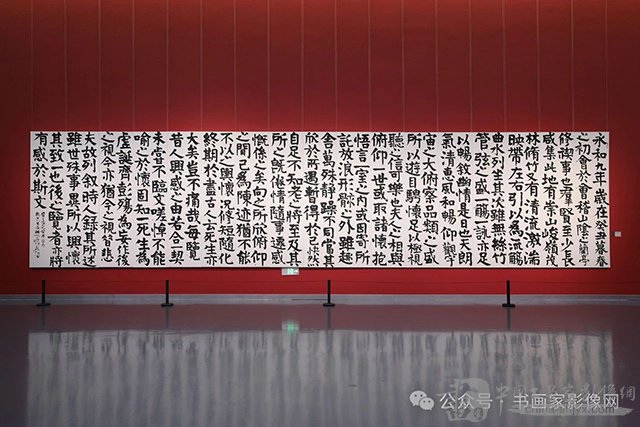 永和九年歲在癸丑暮春
之初會于會稽山陰之蘭亭
修禊事也群賢畢至少長
咸集此地有崇山峻嶺茂
林脩竹又有清流激湍
映帶左右引以為流觴
曲水列坐其次雖無絲竹
管弦之盛一觴一詠亦足
以暢叙幽情是日也天朗
氣清惠風和暢仰觀宇
宙之大俯察品類之盛
所以遊目騁懷足以極視
聽之信可樂也夫人之相與
俯仰一世或取諸懷抱
悟言一室之內或因寄所
託放浪形骸之外雖趣
舍萬殊静躁不同當其
欣於所遇暫得於己怏然
自足不知老之將至及其
所之既倦情隨事遷感
慨係之矣向之所欣俯仰
之間已為陳迹猶不能
不以之興懷況修短隨化
終期於盡古人云死生亦
大矣豈不痛哉每覽
昔人興感之由若合一契
未嘗不臨文嗟悼不能
喻之於懷固知一死生為
虛誕齊彭殤為妄作後
之視今亦猶今之視昔悲
夫故列叙時人錄其所述
雖世殊事異所以興懷
其致一也後之覽者亦將
有感於斯文
公众号 · 书画家影像网